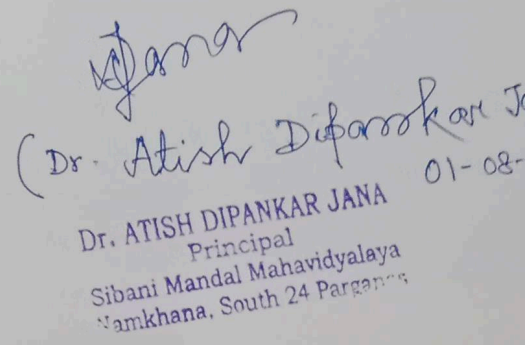 AJana
(Dr. Atish Dipankar Ja
01-08-
Dr. ATISH DIPANKAR JANA
Principal
Sibani Mandal Mahavidyalaya
Namkhana, South 24 Parganas